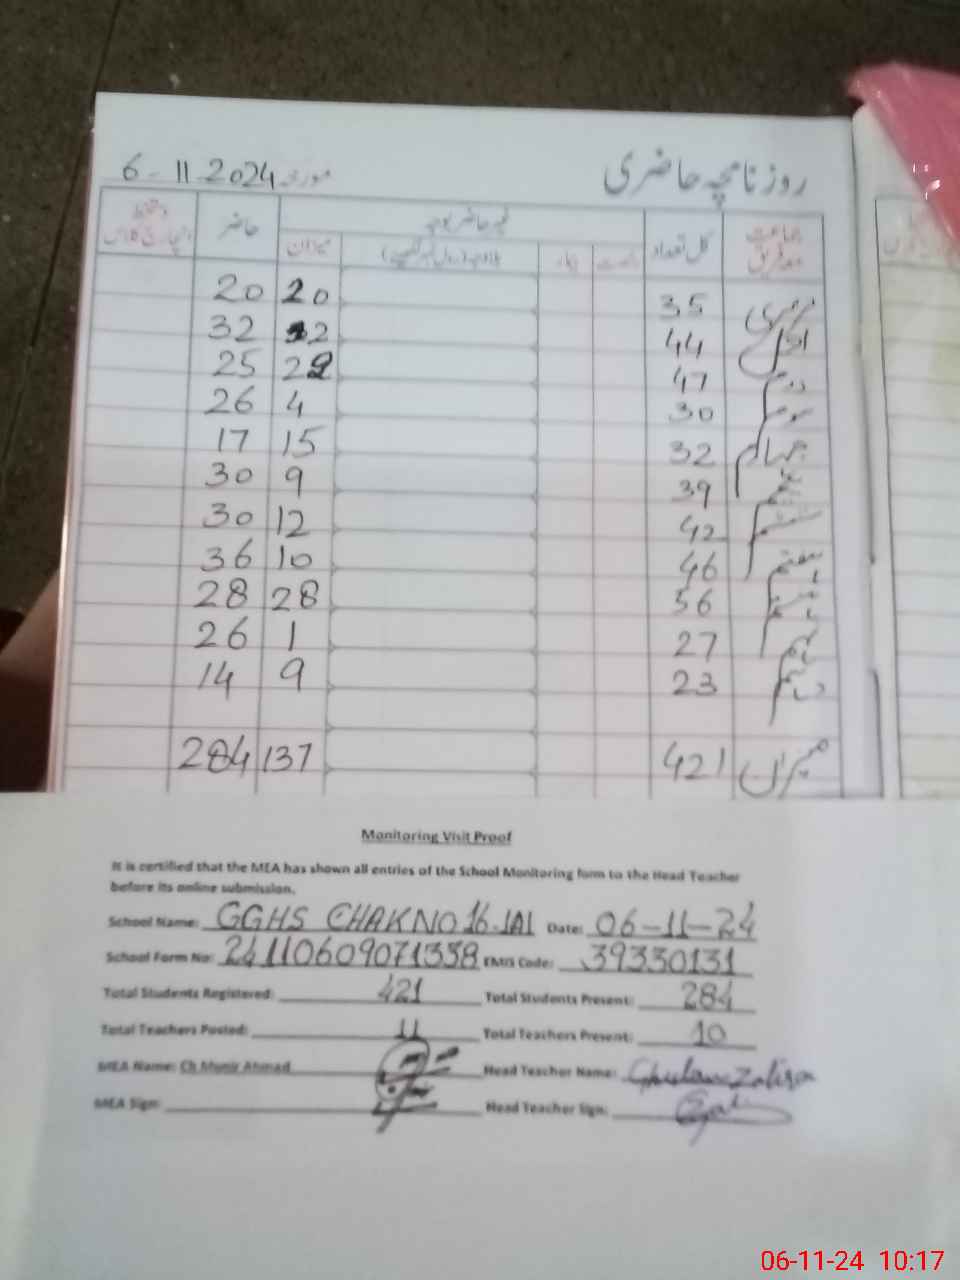 روزنامچہ حاضری مورخہ 6-11-2024
جماعت کل تعداد غیر حاضر بوجہ میزان حاضر
نرسری 35 20 20
اول 44 32
دوم 47 22 25
سوم 30 4 26
چہارم 32 15 17
پنجم 39 9 30
ششم 42 12 30
ہفتم 46 10 36
ہشتم 56 28 28
نہم 27 1 26
دہم 23 9 14
میزان 421 137 284
Monitoring Visit Proof
It is certified that the MEA has shown all entries of the School Monitoring form to the Head Teacher
before its online submission.
School Name: GGHS CHAK NO 16.1Al Date: 06-11-24
School Form No: 24110609071338 EMIS Code: 39330131
Total Students Registered: 421 Total Students Present: 284
Total Teachers Posted: 11 Total Teachers Present: 10
MEA Name: Ch Munir Ahmad Head Teacher Name:
MEA Sign: Head Teacher Sign:
06-11-24 10:17